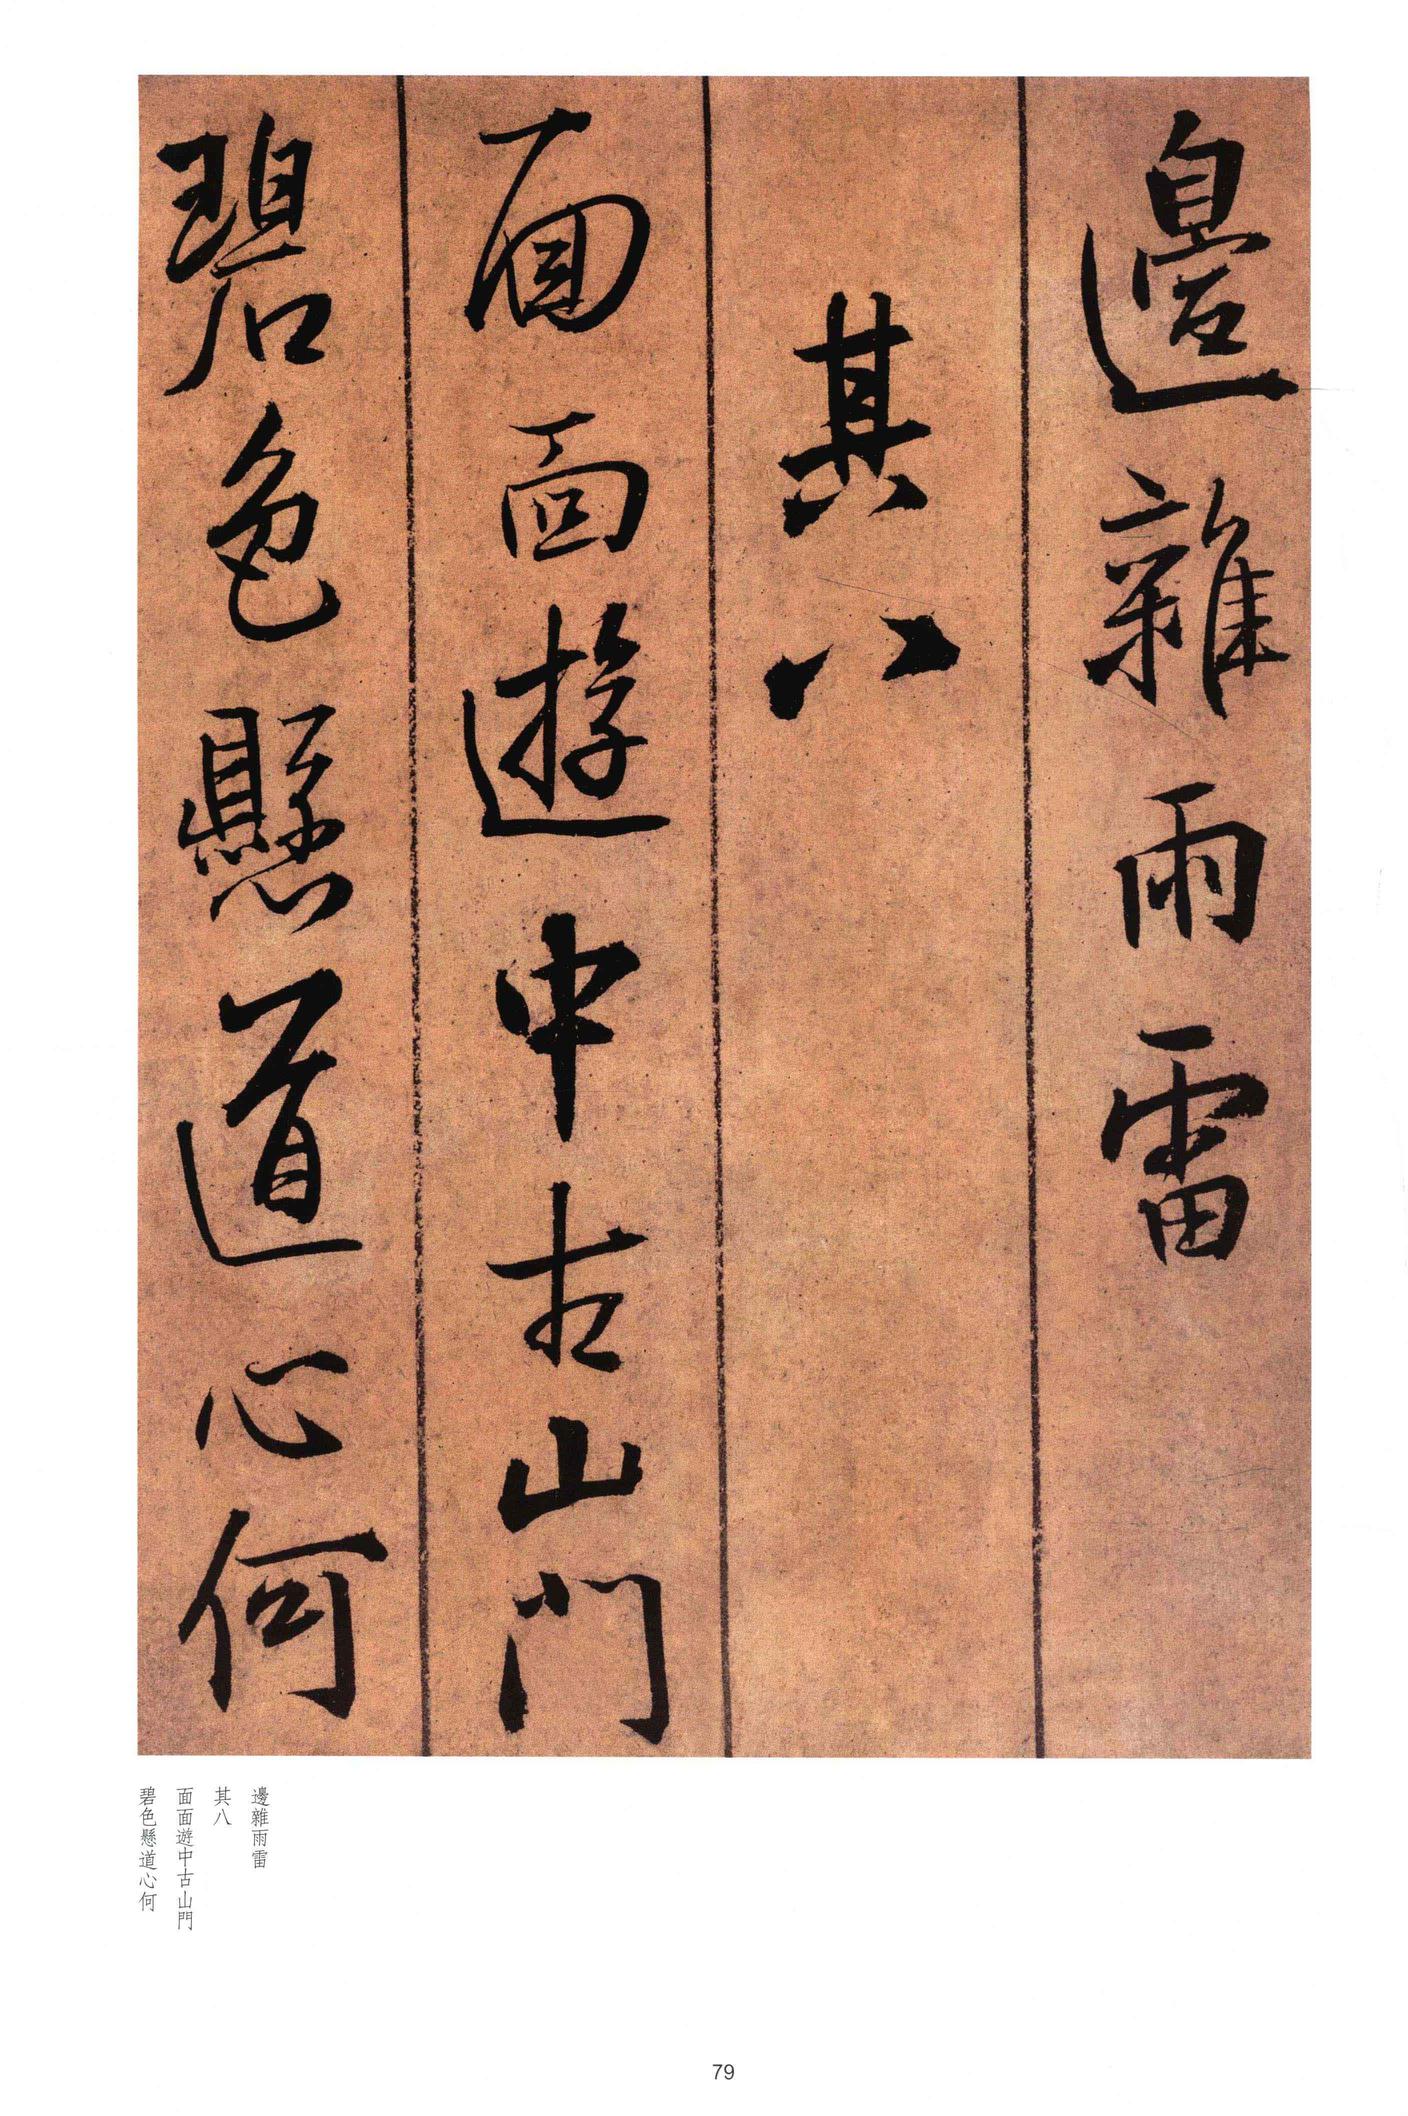 邊雜雨雷
其八
面面遊中古山門
碧色懸道心何
邊雜雨雷
其八
面面遊中古山門
碧色懸道心何
79